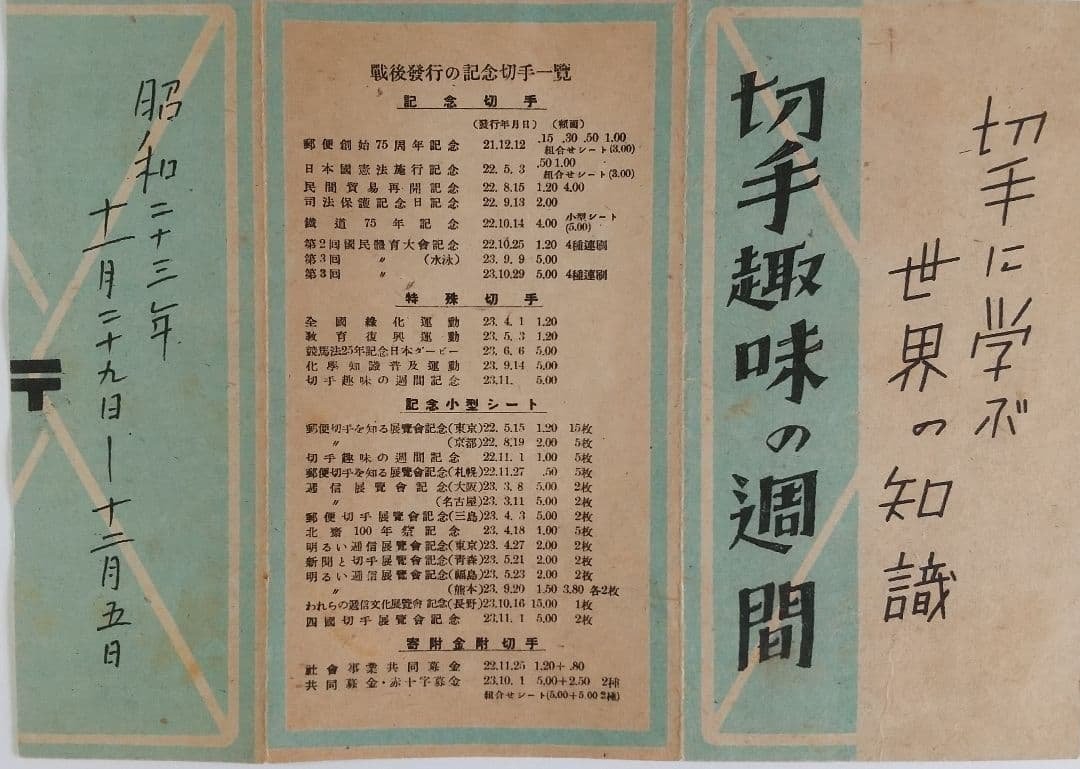 切手に学ぶ
世界の知識
切手趣味の週間
戰後發行の記念切手一覽
記念切手
(發行年月日) (額面)
郵便創始75周年記念 21.12.12 .15 .30 .50 1.00
組合せシート(3.00)
日本國憲法施行記念 22. 5. 3 .50 1.00
組合せシート(3.00)
民間貿易再開記念 22. 8.15 1.20 4.00
司法保護記念日記念 22. 9.13 2.00
鐵道75年記念 22.10.14 4.00 小型シート(5.00)
第2回國民體育大會記念 22.10.25 1.20 4種連刷
第3回 〃 (水泳) 23. 9. 9 5.00
第3回 〃 23.10.29 5.00 4種連刷
特殊切手
全國綠化運動 23. 4. 1 1.20
教育復興運動 23. 5. 3 1.20
競馬法25年記念日本ダービー 23. 6. 6 5.00
化學知識普及運動 23. 9.14 5.00
切手趣味の週間記念 23.11. 5.00
記念小型シート
郵便切手を知る展覽會記念(東京) 22. 5.15 1.20 15枚
〃 (京都) 22. 8.19 2.00 5枚
切手趣味の週間記念 22.11. 1 1.00 5枚
郵便切手を知る展覽會記念(札幌) 22.11.27 .50 5枚
遞信展覽會記念(大阪) 23. 3. 8 5.00 2枚
〃 (名古屋) 23. 3.11 5.00 2枚
郵便切手展覽會記念(三島) 23. 4. 3 5.00 2枚
北齋100年祭記念 23. 4.18 1.00 5枚
明るい遞信展覽會記念(東京) 23. 4.27 2.00 2枚
新聞と切手展覽會記念(青森) 23. 5.21 2.00 2枚
明るい遞信展覽會記念(福島) 23. 5.23 2.00 2枚
〃 (熊本) 23. 9.20 1.50 3.80 各2枚
われらの遞信文化展覽會記念(長野) 23.10.16 15.00 1枚
四國切手展覽會記念 23.11. 1 5.00 2枚
寄附金附切手
社會事業共同募金 22.11.25 1.20+.80
共同募金・赤十字募金 23.10. 1 5.00+2.50 2種
組合せシート(5.00+5.00 2種)
昭和二十三年
十一月二十九日ー十二月五日
〒